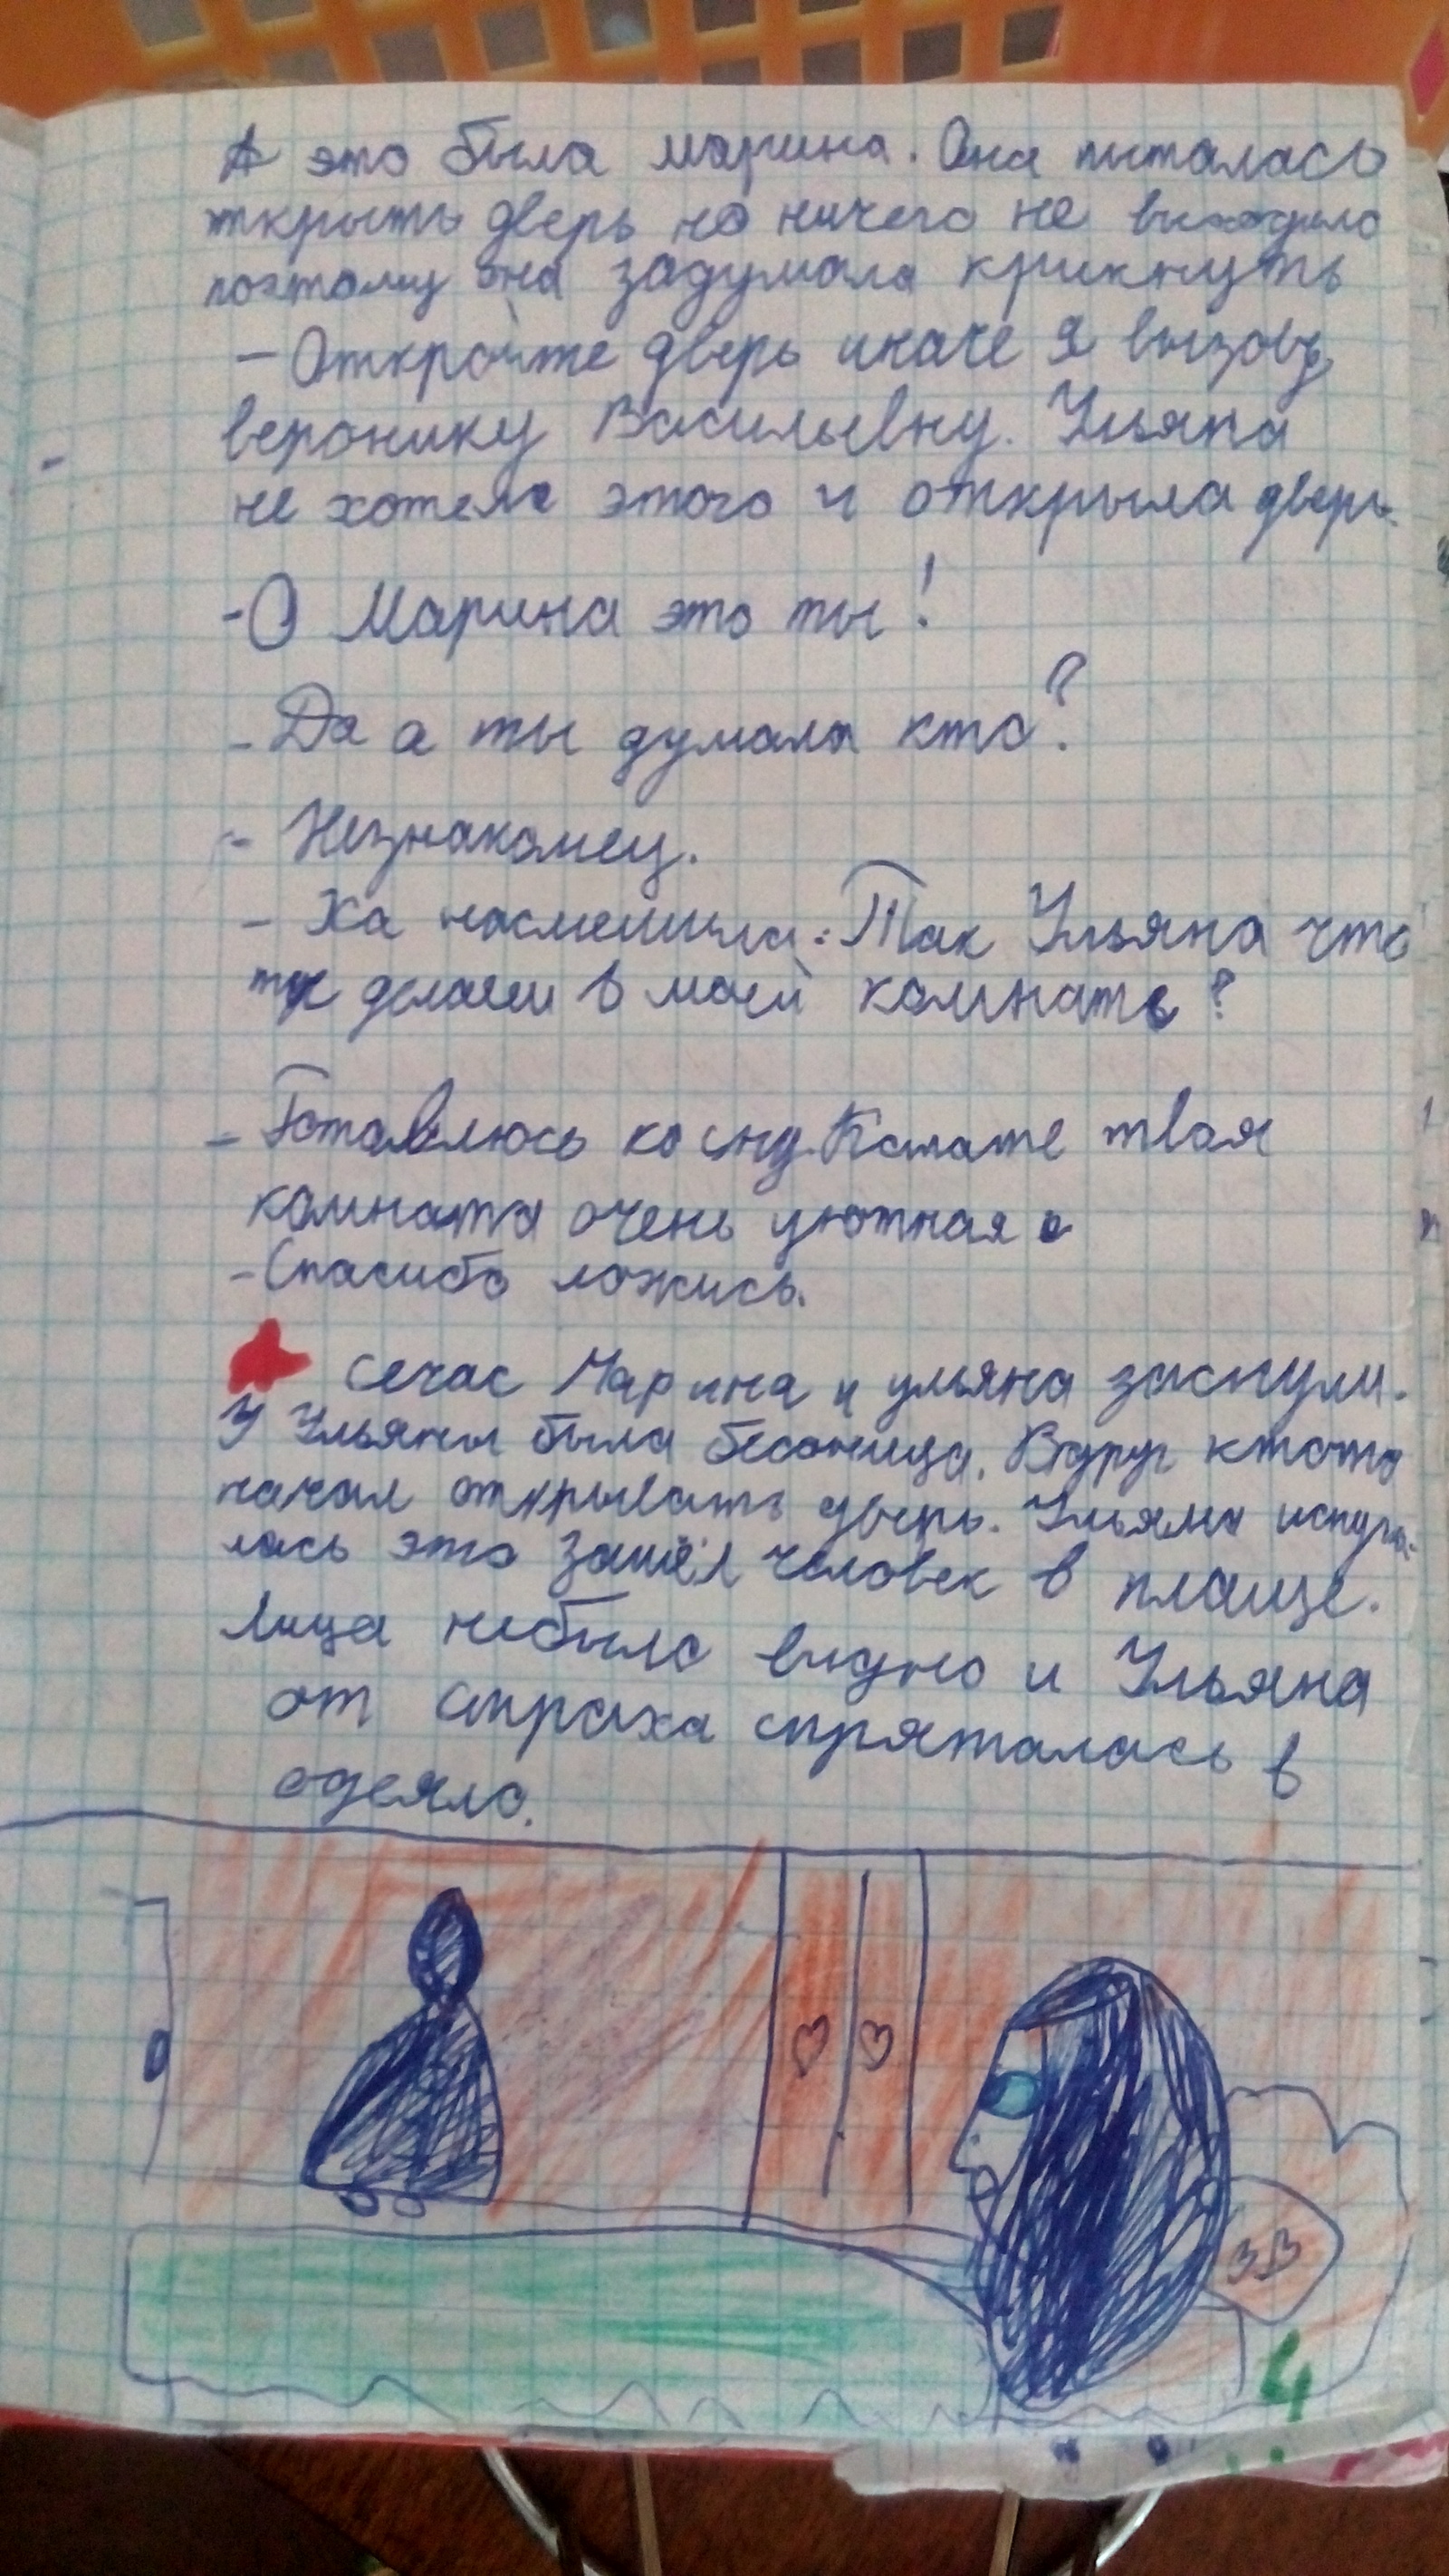 А это была марина. Она пыталась
ткрыть дверь но ничего не выходило
поэтому она задумала крикнуть
– Откройте дверь иначе я вызову
веронику Васильевну. Ульяна
не хотела этого и открыла дверь.
-О Марина это ты!
- Да а ты думала кто?
- Незнакомец.
- Ха насмешила. Так Ульяна что
ты делаеш в моей комнате?
- Готовлюсь ко сну. Кстате твоя
комната очень уютная.
-Спасибо ложись.
сечас Марина и ульяна заснули.
У Ульяны была бесоница. Вдруг ктото
начал открывать дверь. Ульяна испуга-
лась это зашёл человек в плаще.
Лица небыло видно и Ульяна
от страха спряталась в
одеяло.
4